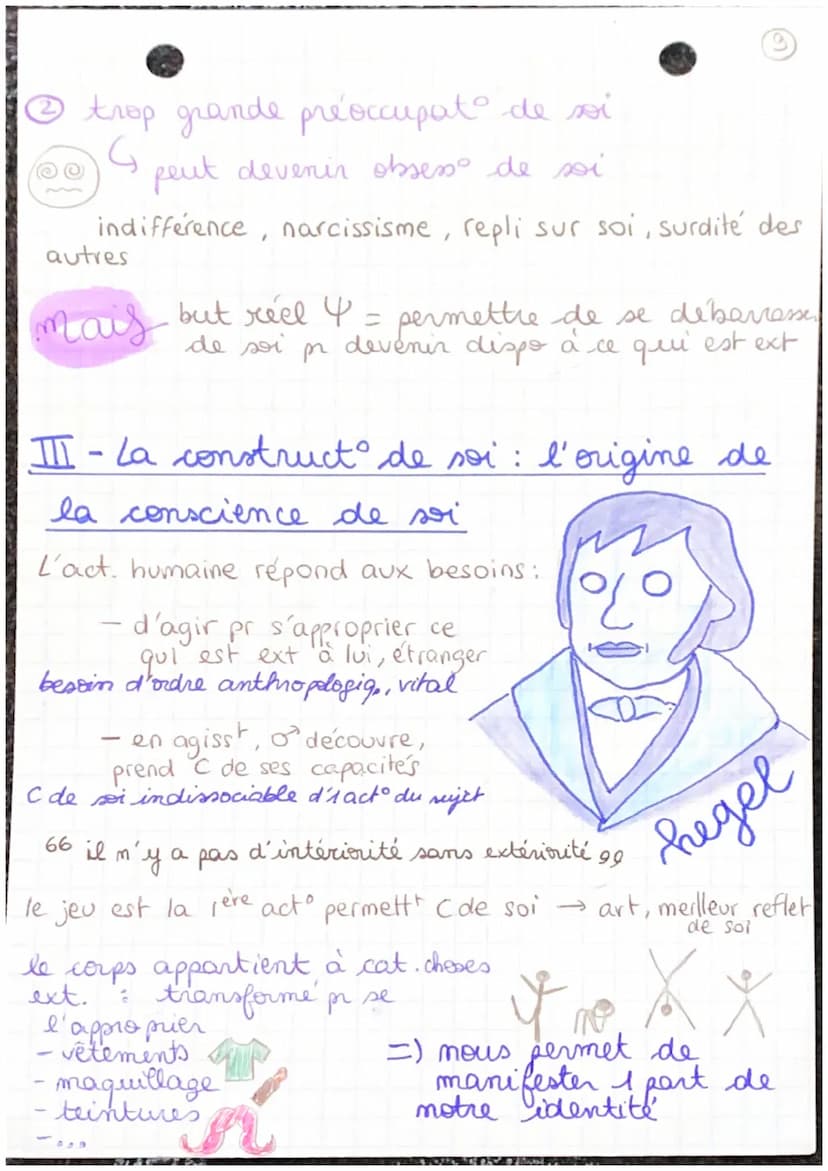 9
② trop grande préoccupat° de soi
↳ peut devenir obsess° de soi
indifférence, narcissisme, repli sur soi, surdité des
autres
mais but réel Ψ = permettre de se débarrasser
de soi pr devenir dispo à ce qui est ext
III - La construct° de soi : l'origine de
la conscience de soi
L'act. humaine répond aux besoins :
- d'agir pr s'approprier ce
qui est ext à lui, étranger
besoin d'ordre anthropologiq., vital
- en agisst, ♂ découvre,
prend C de ses capacités
C de soi indissociable d'1 act° du sujet
hegel
66 il n'y a pas d'intériorité sans extériorité 99
le jeu est la 1ère act° permettt C de soi → art, meilleur reflet
de soi
le corps appartient à cat. choses
ext. : transformé pr se
l'approprier
- vêtements
- maquillage
- teintures
- ...
=) nous permet de
manifester 1 part de
notre identité